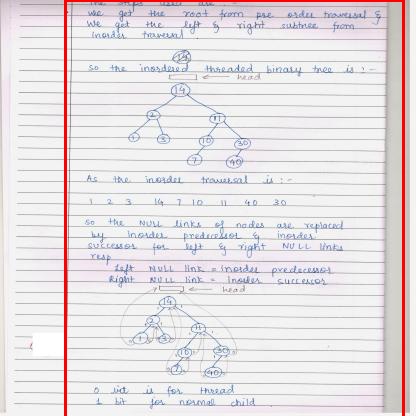 The steps used are :-
we get the root from pre order traversal &
we get the left & right subtree from
inorder traversal.
14
so the inordered threaded binary tree is :-
head
14
2 11
1 3 10 30
7 40
As the inorder traversal is :-
1 2 3 14 7 10 11 40 30
so the NULL links of nodes are replaced
by inorder predecessor & inorder
successor for left & right NULL links
resp
Left NULL link = inorder predecessor
Right NULL link = inorder successor
head
14
2 11
1 3 10 30
7 40
0 bit is for thread
1 bit for normal child